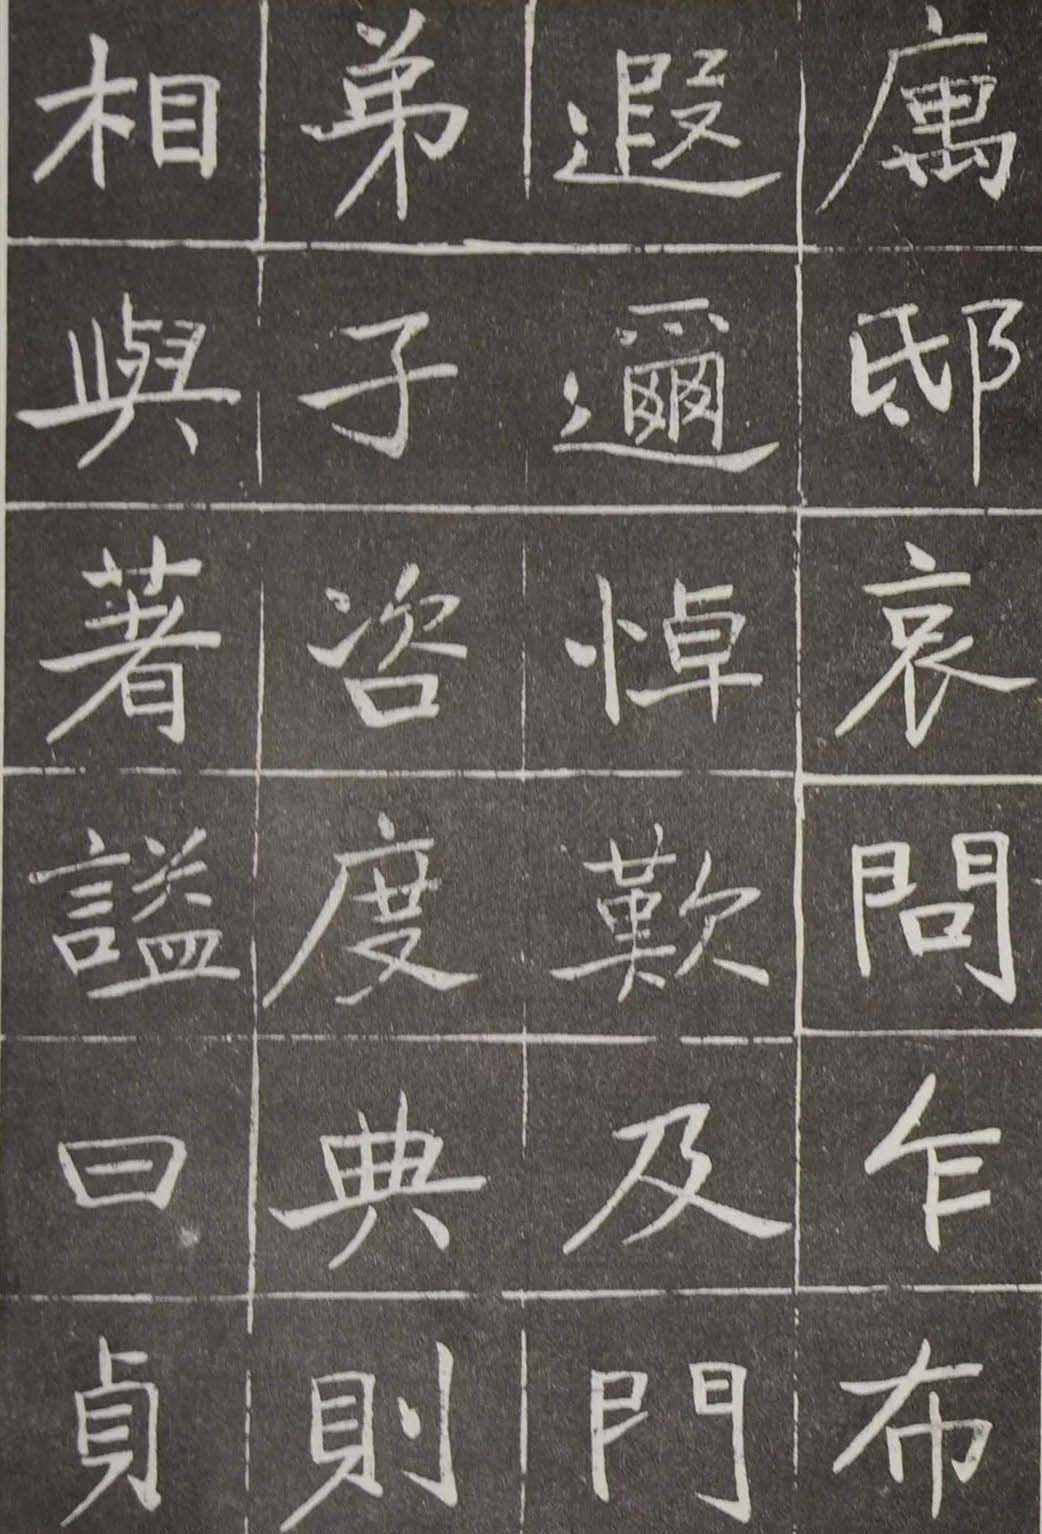 庽邸哀問乍布
遐邇悼歎及門
弟子咨度典則
相與著謚曰貞